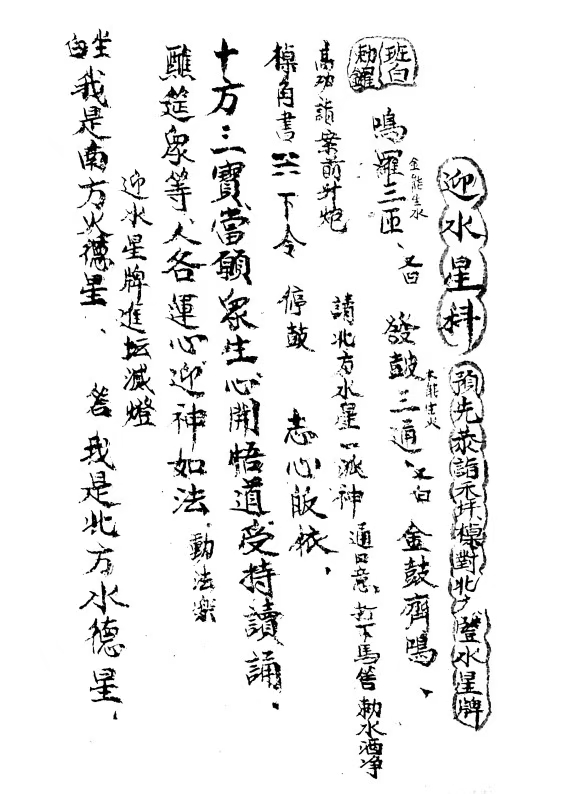 迎水星科 預先恭詣禾坪 對北方燈水星牌
班白 勅鑼 鳴羅三匝、又白 發鼓三通、又白 金鼓齊鳴、
金能生水
木能生火
高功詣案前升炮 請北方水星一派神 通口意 打下馬筶 勅水洒净
角書 下令 停鼓 志心皈依，
十方三寶當願眾生心開悟道受持讀誦。
醮筵眾等人各運心迎神如法，動法樂
迎水星牌進坛滅燈
坐白 我是南方火德星、 答 我是北方水德星，